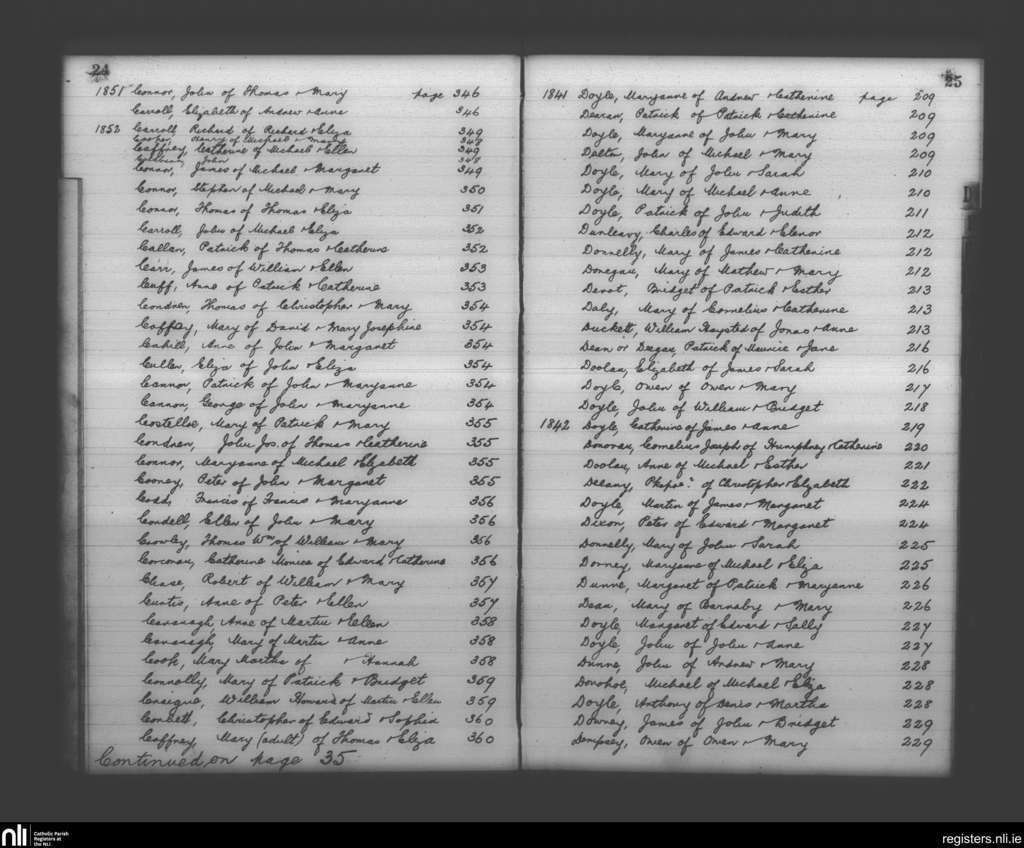 24
1851 Connor, John of Thomas & Mary page 346
Carroll, Elizabeth of Andrew & Anne 346
1852 Carroll, Richard of Richard & Eliza 349
Cooper, Henry of Michael & 348
Caffrey, Catherine of Michael & Ellen 349
John 348
Connor, James of Michael & Margaret 349
Connor, Stephen of Michael & Mary 350
Connor, Thomas of Thomas & Eliza 351
Carroll, John of Michael & Eliza 352
Callan, Patrick of Thomas & Catherine 352
Carr, James of William & Ellen 353
Cuff, Anne of Patrick & Catherine 353
Condren, Thomas of Christopher & Mary 354
Caffrey, Mary of David & Mary Josephine 354
Cahill, Anne of John & Margaret 354
Cullen, Eliza of John & Eliza 354
Cannon, Patrick of John & Maryanne 354
Cannon, George of John & Maryanne 354
Costelloe, Mary of Patrick & Mary 355
Condren, John Jos. of Thomas & Catherine 355
Connor, Maryanne of Michael & Elizabeth 355
Cooney, Peter of John & Margaret 355
Codd, Francis of Francis & Maryanne 356
Condell, Ellen of John & Mary 356
Crowley, Thomas Wm of William & Mary 356
Corcoran, Catherine Monica of Edward & Catherine 356
Chase, Robert of William & Mary 357
Curtis, Anne of Peter & Ellen 357
Cavanagh, Anne of Martin & Ellen 358
Cavanagh, Mary of Martin & Anne 358
Cook, Mary Martha of & Hannah 358
Connolly, Mary of Patrick & Bridget 359
William Howard of Martin & Ellen 359
Corbett, Christopher of Edward & Sophia 360
Caffrey, Mary (adult) of Thomas & Eliza 360
Continued on page 35
25
1841 Doyle, Maryanne of Andrew & Catherine page 209
Dearan, Patrick of Patrick & Catherine 209
Doyle, Maryanne of John & Mary 209
Dalton, John of Michael & Mary 209
Doyle, Mary of John & Sarah 210
Doyle, Mary of Michael & Anne 210
Doyle, Patrick of John & Judith 211
Dunleavy, Charles of Edward & Elenor 212
Donnelly, Mary of James & Catherine 212
Donegan, Mary of Mathew & Mary 212
Derot, Bridget of Patrick & Esther 213
Daly, Mary of Cornelius & Catherine 213
Duckett, William of Jonas & Anne 213
Dean or Deegan, Patrick of Maurice & Jane 216
Doolan, Elizabeth of James & Sarah 216
Doyle, Owen of Owen & Mary 217
Doyle, John of William & Bridget 218
1842 Doyle, Catherine of James & Anne 219
Donovan, Cornelius Joseph of Humphrey & Catherine 220
Doolan, Anne of Michael & Esther 221
Delany, of Christopher & Elizabeth 222
Doyle, Martin of James & Margaret 224
Dixon, Peter of Edward & Margaret 224
Donnelly, Mary of John & Sarah 225
Dorney, Maryanne of Michael & Eliza 225
Dunne, Margaret of Patrick & Maryanne 226
Dean, Mary of Barnaby & Mary 226
Doyle, Margaret of Edward & Sally 227
Doyle, John of John & Anne 227
Dunne, John of Andrew & Mary 228
Donohoe, Michael of Michael & Eliza 228
Doyle, Anthony of Denis & Martha 228
Downey, James of John & Bridget 229
Dempsey, Owen of Owen & Mary 229
D
nli Catholic Parish Registers at the NLI
registers.nli.ie